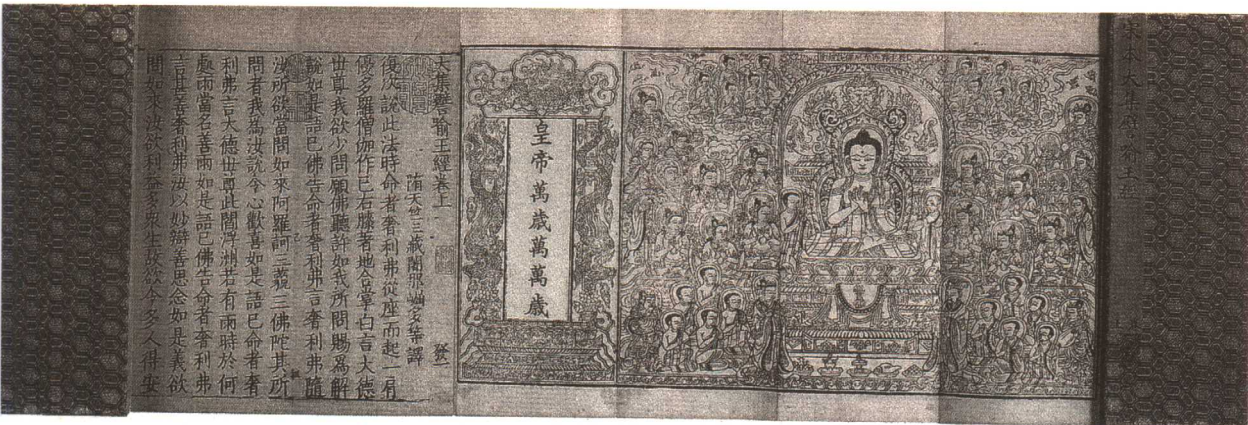 宋本大集譬喻王經
皇帝萬歲萬萬歲
大集譬喻王經卷上 發一
隋天竺三藏闍那崛多等譯
復次說此法時命者奢利弗從座而起一肩
優多羅僧伽作已右膝著地合掌白言大德
世尊我欲少問願佛聽許如我所問賜為解
說如是語已佛告命者奢利弗言奢利弗隨
汝所欲當問如來阿羅訶三藐三佛陀其所
問者我為汝說令心歡喜如是語已命者奢
利弗言大德世尊此閻浮洲若有雨時於何
處雨當名善雨如是語已佛告命者奢利弗
言甚善奢利弗汝以妙辯善思念如是義欲
問如來汝欲利益多衆生故欲令多人得安